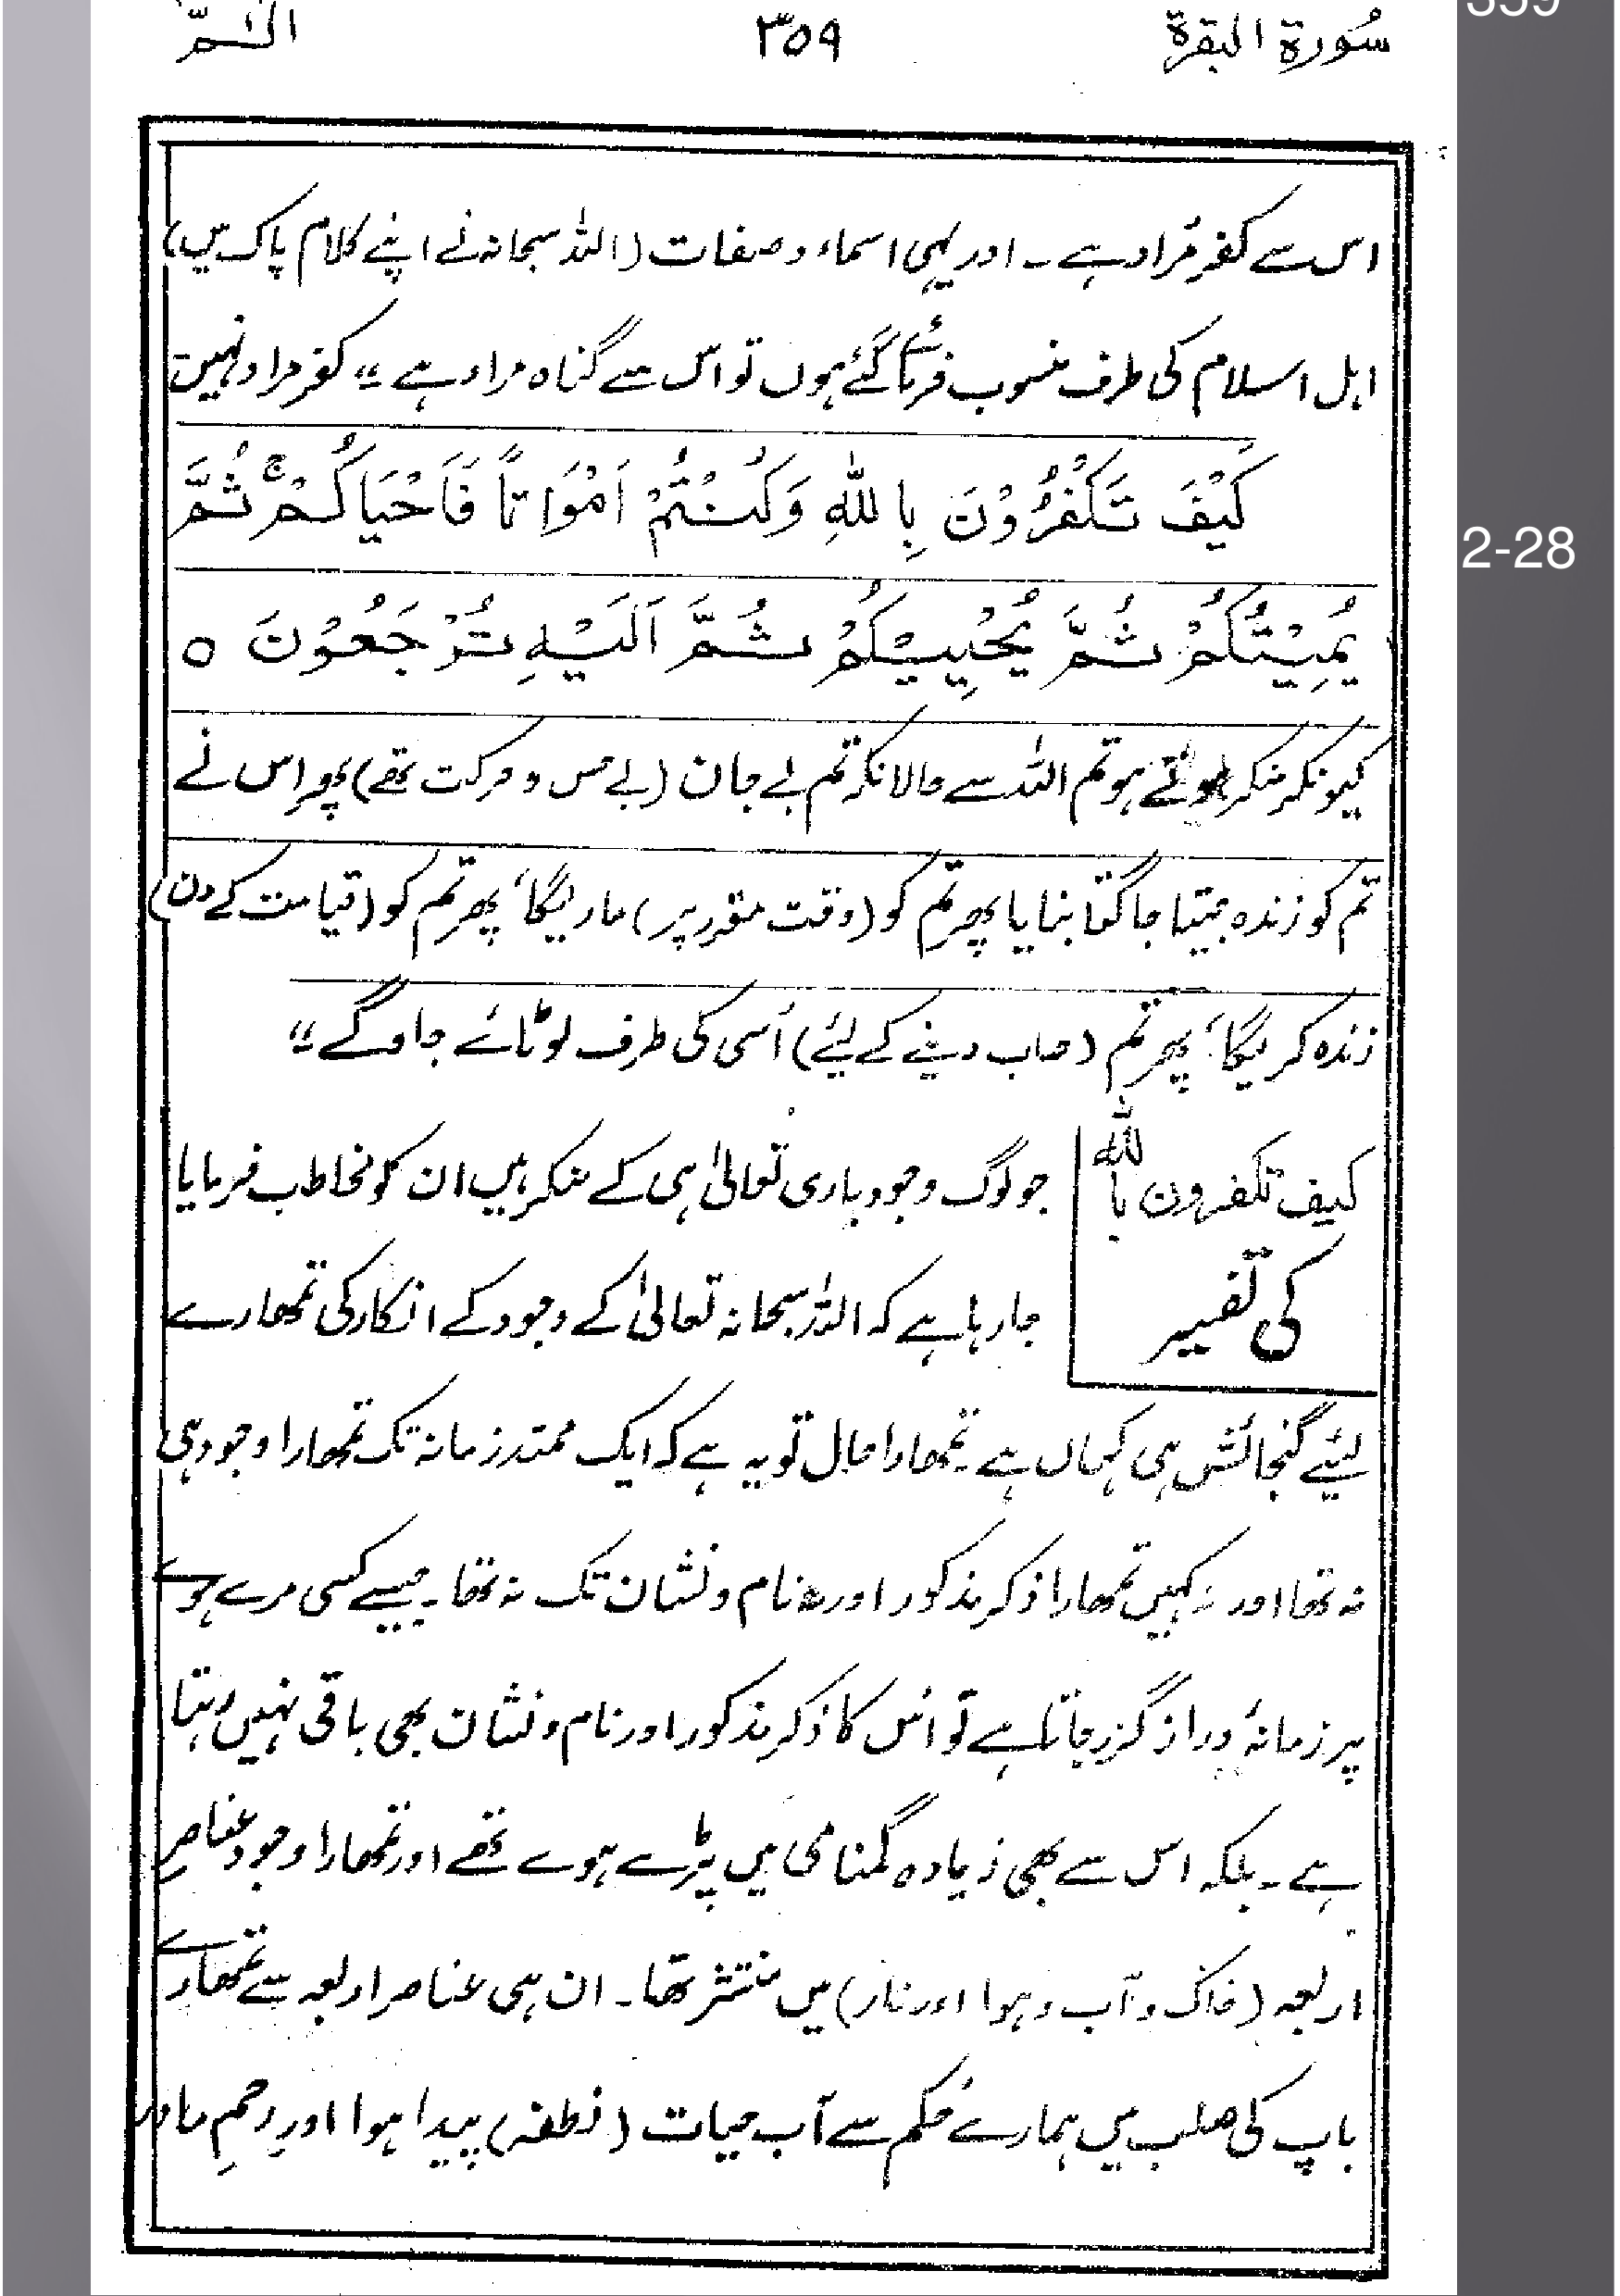 سُورة البقرة ۳۵۹ الٓـمّٓ
359
اس سے کفر مُراد ہے ۔ اور یہی اسماء و صفات (اللہ سبحانہ نے اپنے کلام پاک میں)
اہل اسلام کی طرف منسوب فرمائے گئے ہوں تو اس سے گناہ مراد ہے ‘‘ کفر مراد نہیں
كَيْفَ تَكْفُرُوْنَ بِاللّٰهِ وَكُنْتُمْ اَمْوَاتًا فَاَحْيَاكُمْ ۚ ثُمَّ
2-28
يُمِيْتُكُمْ ثُمَّ يُحْيِيْكُمْ ثُمَّ اَلَيْهِ تُرْجَعُوْنَ ○
کیونکر منکر ہوتے ہو تم اللہ سے حالانکہ تم بے جان (بے حس و حرکت تھے) پھر اس نے
تم کو زندہ جیتا جاگتا بنایا پھر تم کو (وقت مقرر پر) ماریگا، پھر تم کو (قیامت کے دن)
زندہ کریگا، پھر تم (حساب دینے کے لیئے) اُسی کی طرف لوٹائے جاوگے ‘‘
کیف تکفرون باللہ
کی تفسیر
جو لوگ وجود باری تعالیٰ ہی کے منکر ہیں ان کو مخاطب فرمایا
جا رہا ہے کہ اللہ سبحانہ تعالیٰ کے وجود کے انکار کی تمھارے
لیئے گنجائش ہی کہاں ہے ۔ تمھارا حال تو یہ ہے کہ ایک ممتد زمانہ تک تمھارا وجود ہی
نہ تھا اور نہ کہیں تمھارا ذکر مذکور اور نہ نام و نشان تک نہ تھا ۔ جیسے کسی مرے ہوے
پر زمانۂ دراز گزر جاتا ہے تو اُس کا ذکر مذکور اور نام و نشان بھی باقی نہیں رہتا
ہے ۔ بلکہ اس سے بھی زیادہ گمنامی میں پڑے ہوے تھے اور تمھارا وجود عناصرِ
اربعہ (خاک و آب و ہوا اور نار) میں منتشر تھا ۔ ان ہی عناصر اربعہ سے تمھارے
باپ کی صلب میں ہمارے حُکم سے آب حیات (نطفہ) پیدا ہوا اور رحمِ مادر